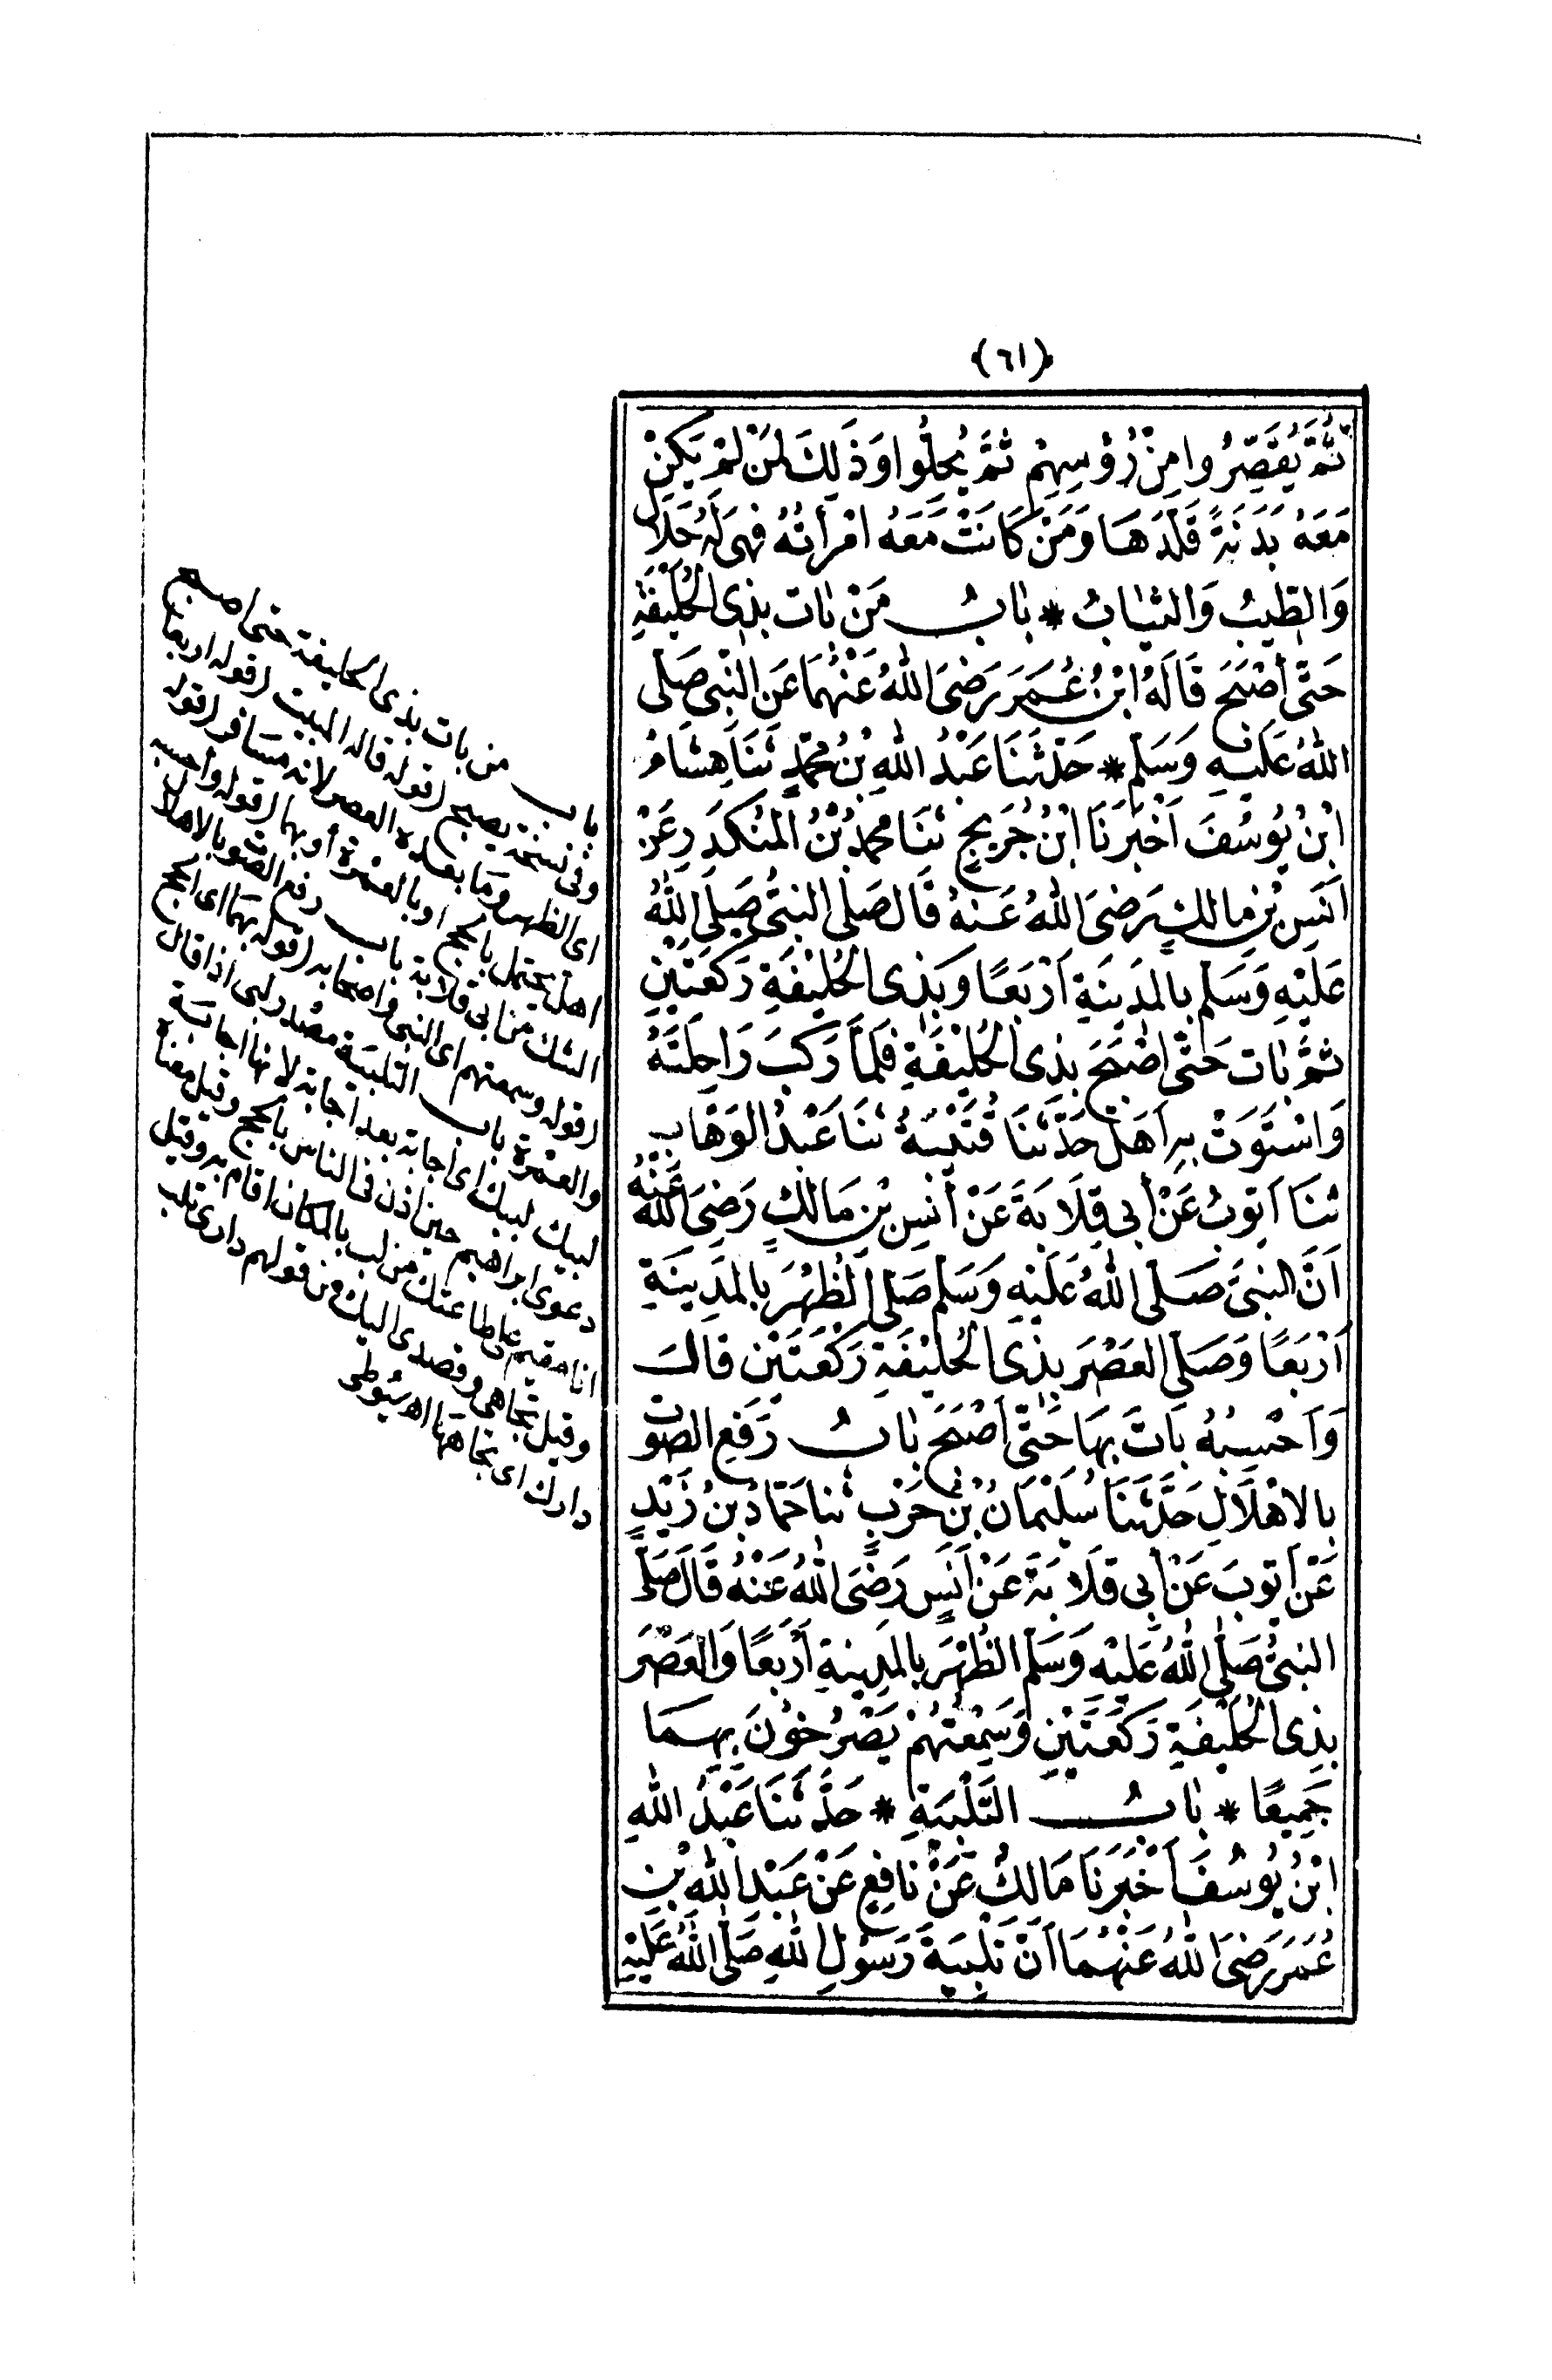 (٦١)
ثُمَّ يُقَصِّرُوا مِنْ رُؤُسِهِمْ ثُمَّ يُحِلُّوا وَذَلِكَ لِمَنْ لَمْ يَكُنْ
مَعَهُ بَدَنَةٌ قَلَّدَهَا وَمَنْ كَانَتْ مَعَهُ امْرَأَتُهُ فَهِيَ لَهُ حَلَالٌ
وَالطِّيبُ وَالثِّيَابُ * بَابُ مَنْ بَاتَ بِذِى الْحُلَيْفَةِ
حَتَّى أَصْبَحَ قَالَهُ ابْنُ عُمَرَ رَضِىَ اللهُ عَنْهُمَا عَنِ النَّبِىِّ صَلَّى
اللهُ عَلَيْهِ وَسَلَّمَ * حَدَّثَنَا عَبْدُ اللهِ بْنُ مُحَمَّدٍ ثَنَا هِشَامُ
ابْنُ يُوسُفَ أَخْبَرَنَا ابْنُ جُرَيْجٍ ثَنَا مُحَمَّدُ بْنُ الْمُنْكَدِرِ عَنْ
أَنَسِ بْنِ مَالِكٍ رَضِىَ اللهُ عَنْهُ قَالَ صَلَّى النَّبِىُّ صَلَّى اللهُ
عَلَيْهِ وَسَلَّمَ بِالْمَدِينَةِ أَرْبَعًا وَبِذِى الْحُلَيْفَةِ رَكْعَتَيْنِ
ثُمَّ بَاتَ حَتَّى أَصْبَحَ بِذِى الْحُلَيْفَةِ فَلَمَّا رَكِبَ رَاحِلَتَهُ
وَاسْتَوَتْ بِهِ أَهَلَّ حَدَّثَنَا قُتَيْبَةُ ثَنَا عَبْدُ الْوَهَّابِ
ثَنَا أَيُّوبُ عَنْ أَبِى قِلَابَةَ عَنْ أَنَسِ بْنِ مَالِكٍ رَضِىَ اللهُ عَنْهُ
أَنَّ النَّبِىَّ صَلَّى اللهُ عَلَيْهِ وَسَلَّمَ صَلَّى الظُّهْرَ بِالْمَدِينَةِ
أَرْبَعًا وَصَلَّى الْعَصْرَ بِذِى الْحُلَيْفَةِ رَكْعَتَيْنِ قَالَ
وَأَحْسِبُهُ بَاتَ بِهَا حَتَّى أَصْبَحَ بَابُ رَفْعِ الصَّوْتِ
بِالْإِهْلَالِ حَدَّثَنَا سُلَيْمَانُ بْنُ حَرْبٍ ثَنَا حَمَّادُ بْنُ زَيْدٍ
عَنْ أَيُّوبَ عَنْ أَبِى قِلَابَةَ عَنْ أَنَسٍ رَضِىَ اللهُ عَنْهُ قَالَ صَلَّى
النَّبِىُّ صَلَّى اللهُ عَلَيْهِ وَسَلَّمَ الظُّهْرَ بِالْمَدِينَةِ أَرْبَعًا وَالْعَصْرَ
بِذِى الْحُلَيْفَةِ رَكْعَتَيْنِ وَسَمِعْتُهُمْ يَصْرُخُونَ بِهِمَا
جَمِيعًا * بَابُ التَّلْبِيَةِ * حَدَّثَنَا عَبْدُ اللهِ
ابْنُ يُوسُفَ أَخْبَرَنَا مَالِكٌ عَنْ نَافِعٍ عَنْ عَبْدِ اللهِ بْنِ
عُمَرَ رَضِىَ اللهُ عَنْهُمَا أَنَّ تَلْبِيَةَ رَسُولِ اللهِ صَلَّى اللهُ عَلَيْهِ
باب من بات بذى الحليفة حتى اصبح
وفى نسخة يصبح (قوله قاله المبيت (قوله اربعا
اى الظهر وما بعده العصر لانه مسافر (قوله
اهل يحتمل بالحج او بالعمرة أو بهما (قوله واحسبه
الشك من ابى قلابة باب رفع الصوت بالاهلال
(قوله وسمعتهم اى النبى واصحابه (قوله بهما اى الحج
والعمرة باب التلبية مصدر لبى اذا قال
لبيك لبيك اى اجابة بعد اجابة لانها اجابة
دعوى ابراهيم حين اذن فى الناس بالحج وقيل معناه
انا مقيم على طاعتك من لب بالمكان اقام به وقيل
وقيل تجاهى وقصدى اليك من قولهم دارى تلب
دارك اى تجاهها اهـ سيوطى